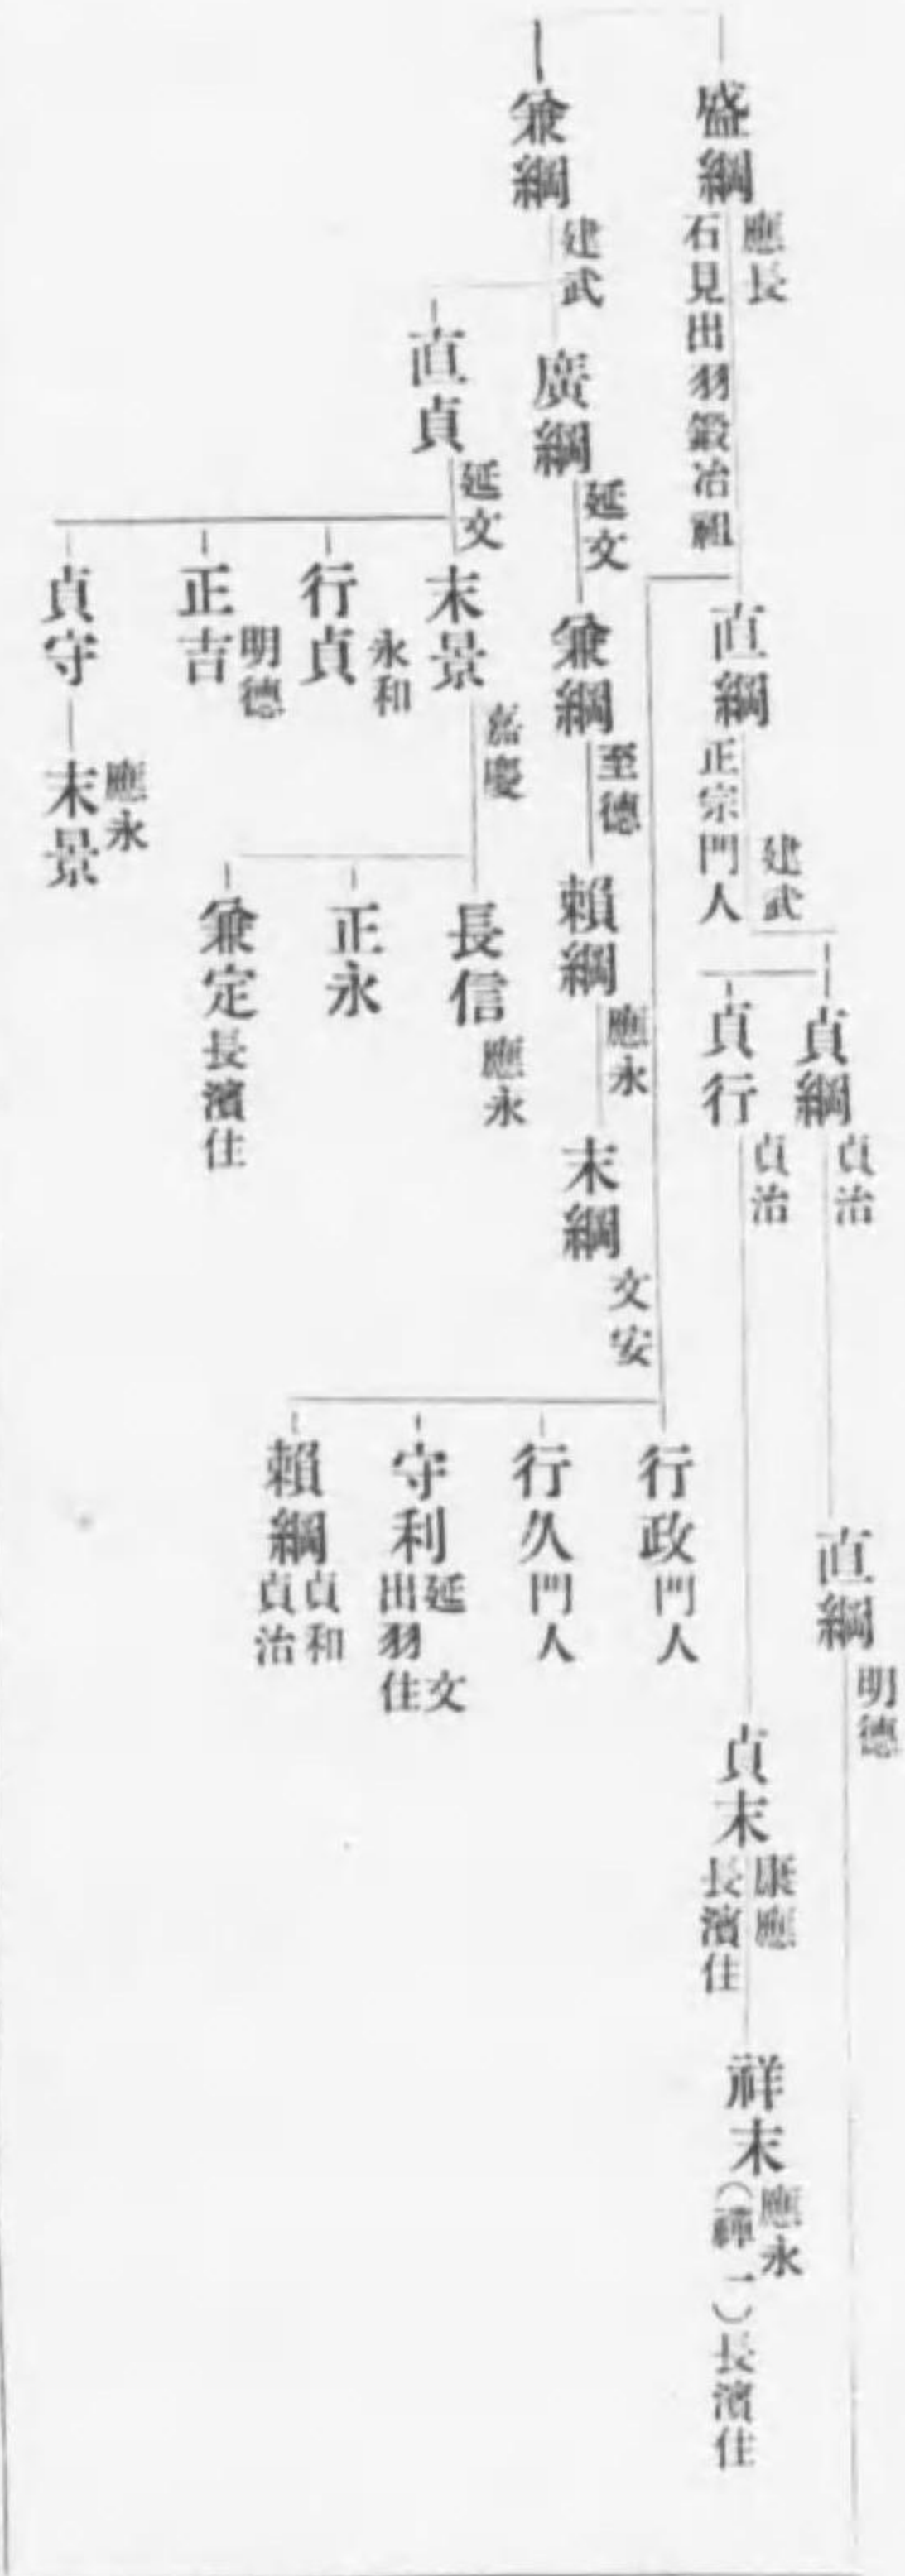 盛綱
應長
石見出羽鍛冶祖
直綱
建武
正宗門人
貞綱
貞治
直綱
明德
貞行
貞治
貞末
康應
長濱住
祥末
應永
（禪一）長濱住
行政門人
行久門人
守利
延文
出羽住
賴綱
貞和
貞治
兼綱
建武
廣綱
延文
兼綱
至德
賴綱
應永
末綱
文安
直貞
延文
末景
嘉慶
長信
應永
正永
兼定長濱住
行貞
永和
正吉
明德
貞守
末景
應永